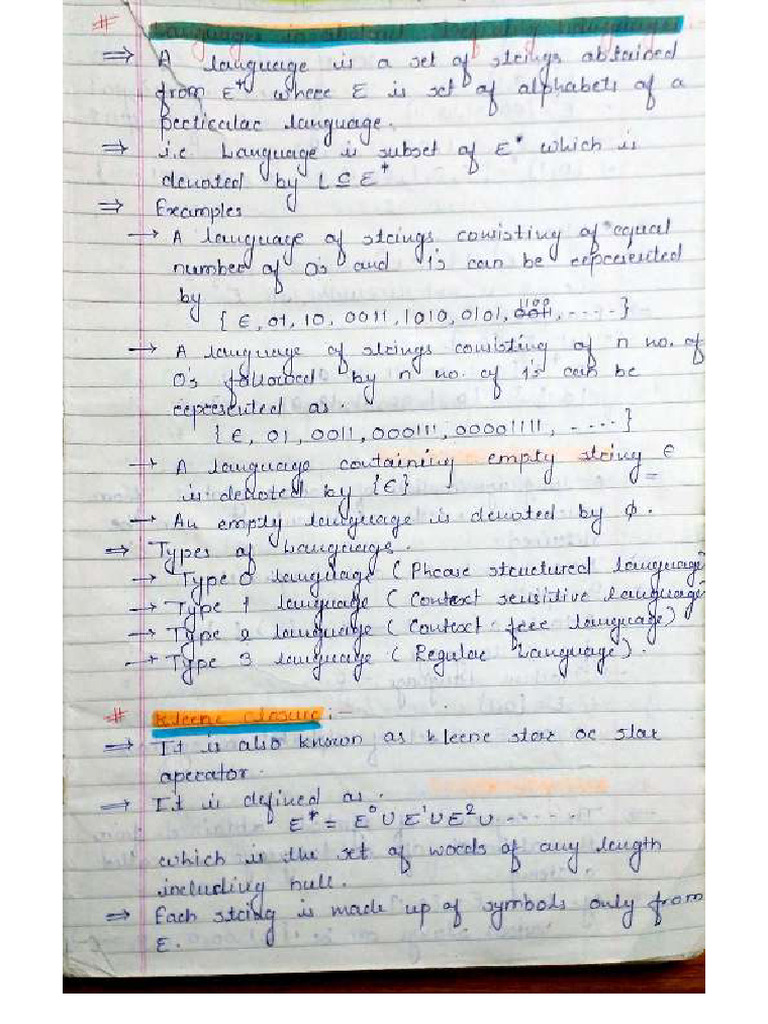 # Languages
⇒ A language is a set of strings obtained
from Σ* where Σ is set of alphabets of a
perticular language.
⇒ i.e. Language is subset of Σ* which is
denoted by L ⊆ Σ*
⇒ Examples
→ A language of strings consisting of equal
number of 0's and 1's can be represented
by
{ ϵ, 01, 10, 0011, 1010, 0101, 1100, ----- }
→ A language of strings consisting of n no. of
0's followed by n no. of 1's can be
represented as.
{ ϵ, 01, 0011, 000111, 00001111, ----- }
→ A language containing empty string ϵ
is denoted by {ϵ}
→ An empty language is denoted by ϕ.
⇒ Types of Language.
→ Type 0 language (Phrase structured language
→ Type 1 language (Context sensitive language
→ Type 2 language (Context free language)
→ Type 3 language (Regular Language).
# Kleene closure :-
⇒ It is also known as kleene star or star
operator.
⇒ It is defined as.
Σ* = Σ⁰ ∪ Σ¹ ∪ Σ² ∪ ------
which is the set of words of any length
including null.
⇒ Each string is made up of symbols only from
Σ.